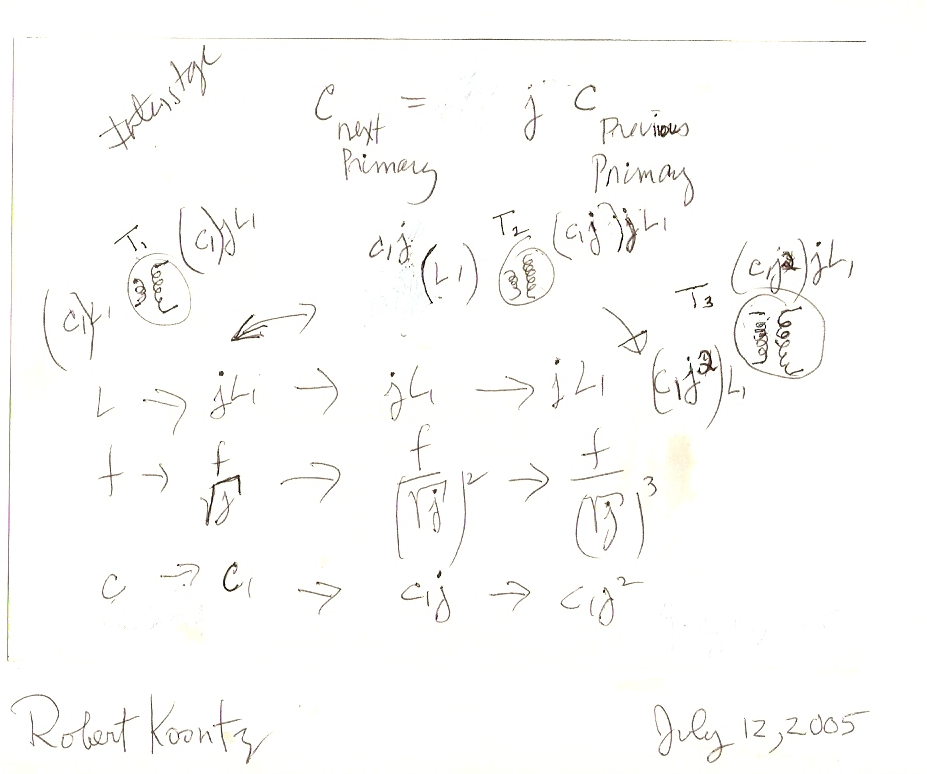 Interstge
C next Primary = j C Previous Primary
T1 (C1)jL1
C1j (L1) T2 (C1j)jL1
T3 (C1j2)jL1
(C1)L1
(C1j2)L1
L → jL1 → jL1 → jL1
f → f/√j → f/(√j)2 → f/(√j)3
C → C1 → C1j → C1j2
Robert Koontz
July 12, 2005